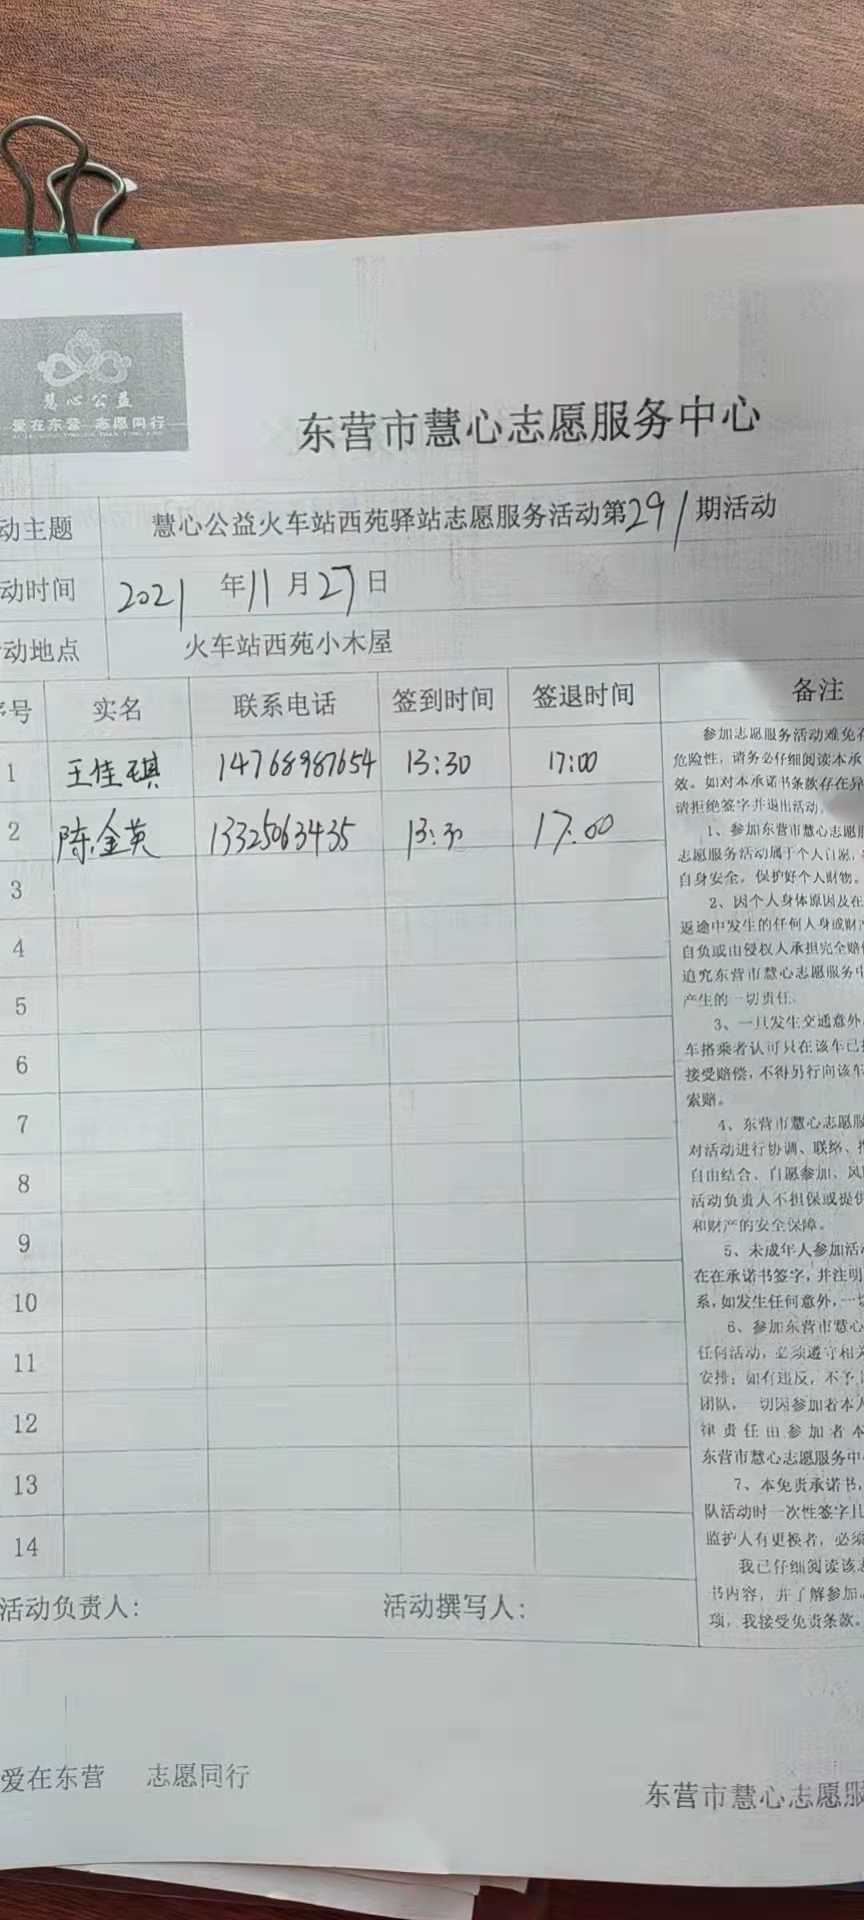 慧心公益
爱在东营 志愿同行
东营市慧心志愿服务中心
动主题 慧心公益火车站西苑驿站志愿服务活动第291期活动
动时间 2021年11月27日
动地点 火车站西苑小木屋
序号 实名 联系电话 签到时间 签退时间 备注
1 王佳琪 14768987654 13:30 17:00
2 陈金英 13325063435 13:30 17:00
3
4
5
6
7
8
9
10
11
12
13
14
参加志愿服务活动难免存
危险性，请务必仔细阅读本承
效。如对本承诺书条款存在异
请拒绝签字并退出活动。
1、参加东营市慧心志愿服
志愿服务活动属于个人自愿，
自身安全，保护好个人财物。
2、因个人身体原因及在
返途中发生的任何人身或财产
自负或由侵权人承担完全赔偿
追究东营市慧心志愿服务中
产生的一切责任。
3、一旦发生交通意外，
车搭乘者认可只在该车已
接受赔偿，不得另行向该车
索赔。
4、东营市慧心志愿服
对活动进行协调、联络、
自由结合、自愿参加、风
活动负责人不担保或提供
和财产的安全保障。
5、未成年人参加活动
在在承诺书签字，并注明
系，如发生任何意外，一切
6、参加东营市慧心
任何活动，必须遵守相关
安排；如有违反，不予
团队，一切因参加者本人
律责任由参加者本
东营市慧心志愿服务中
7、本免责承诺书，
队活动时一次性签字
监护人有更换者，必须
我已仔细阅读该志
书内容，并了解参加
项，我接受免责条款。
活动负责人： 活动撰写人：
爱在东营 志愿同行
东营市慧心志愿服